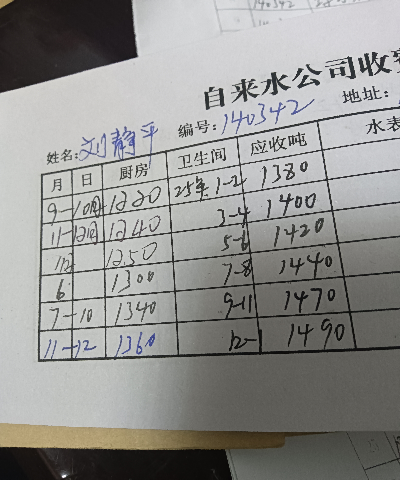 140342
自来水公司收费
姓名:刘静平 编号:140342 地址:
月 日 厨房 卫生间 应收吨 水表
9-10月 1220 25年1-2 1380
11-12月 1240 3-4 1400
1250 5-6 1420
6 1300 7-8 1440
7-10 1340 9-11 1470
11-12 1360 12-1 1490